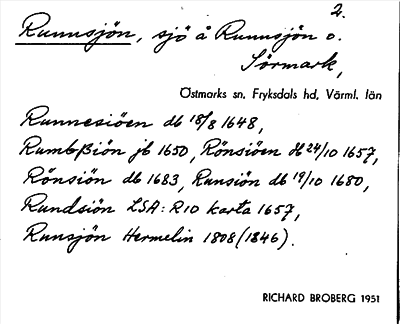 2.
Runnsjön, sjö å Runnsjön o.
Sörmark,
Östmarks sn, Fryksdals hd, Värml. län
Runnesiöen db 18/8 1648,
Rumbßiön jb 1650, Rönsiöen db 24/10 1657,
Rönsiön db 1683, Runsiön db 19/10 1680,
Rundsiön LSA: R10 karta 1657,
Runsjön Hermelin 1808 (1846).
RICHARD BROBERG 1951